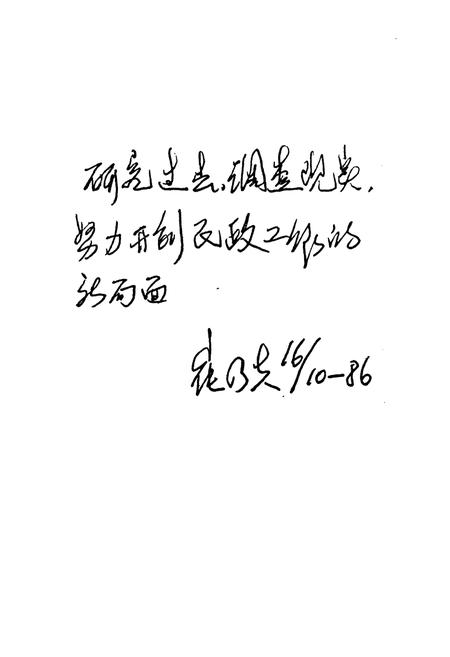 研究过去、调查现实，
努力开创民政工作的
新局面
崔乃夫 16/10-86